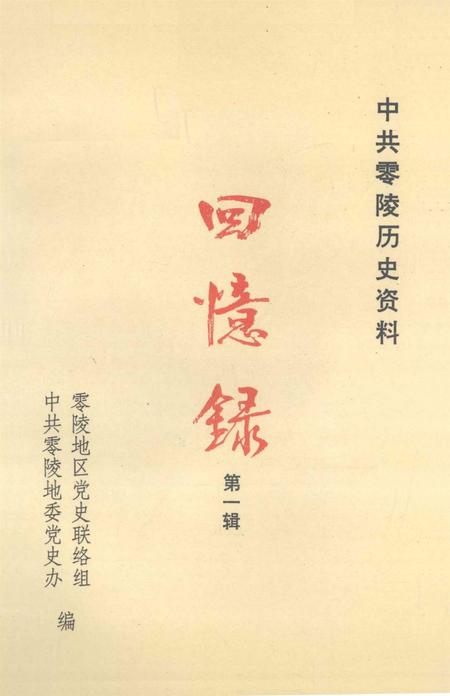 中共零陵历史资料
回憶录
第一辑
零陵地区党史联络组
中共零陵地委党史办
编